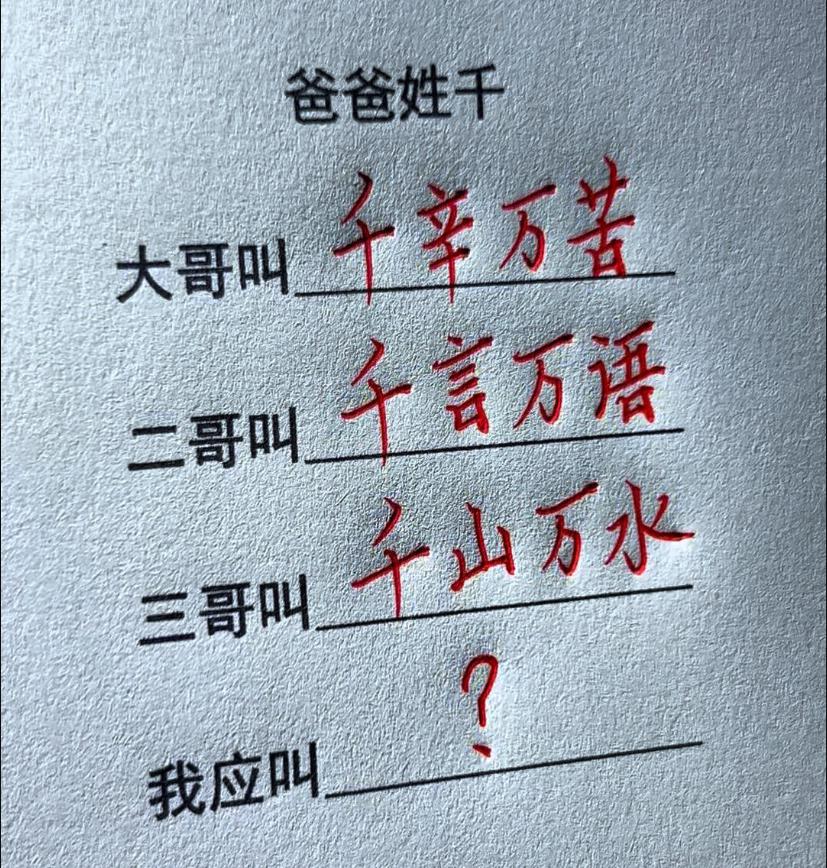 爸爸姓千
大哥叫千辛万苦
二哥叫千言万语
三哥叫千山万水
我应叫?